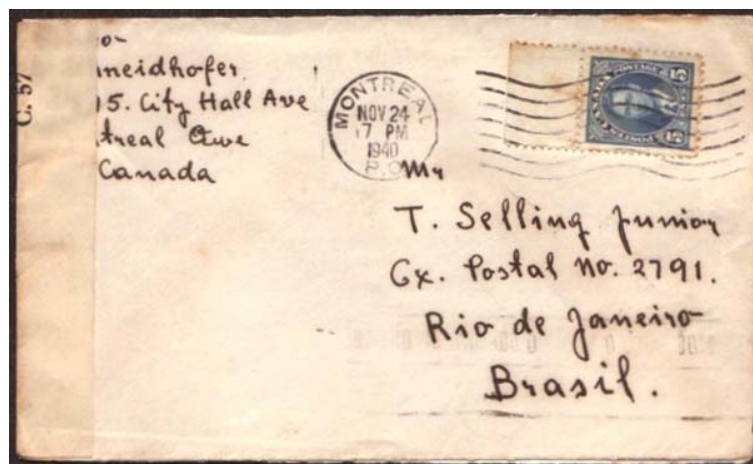 C. 57
neidhofer
15. City Hall Ave
treal Que
Canada
MONTREAL
NOV 24
7 PM
1940
P.Q.
CANADA POSTAGE
5 5
Mr
T. Selling junior
Cx. Postal No. 2791.
Rio de Janeiro
Brasil.